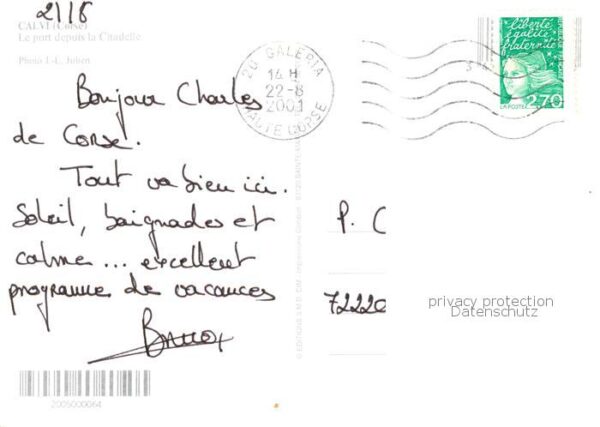 21/8
CALVI (Corse)
Le port depuis la Citadelle
Photo J.-L. Julien
Bonjour Charles
de Corse.
Tout va bien ici.
Soleil, baignades et
calme ... excellent
programme de vacances
20 GALERIA
14 H
22-8
2001
HAUTE CORSE
liberté
égalité
fraternité
LA POSTE
2,70
P. C
72220
privacy protection
Datenschutz
2005000064